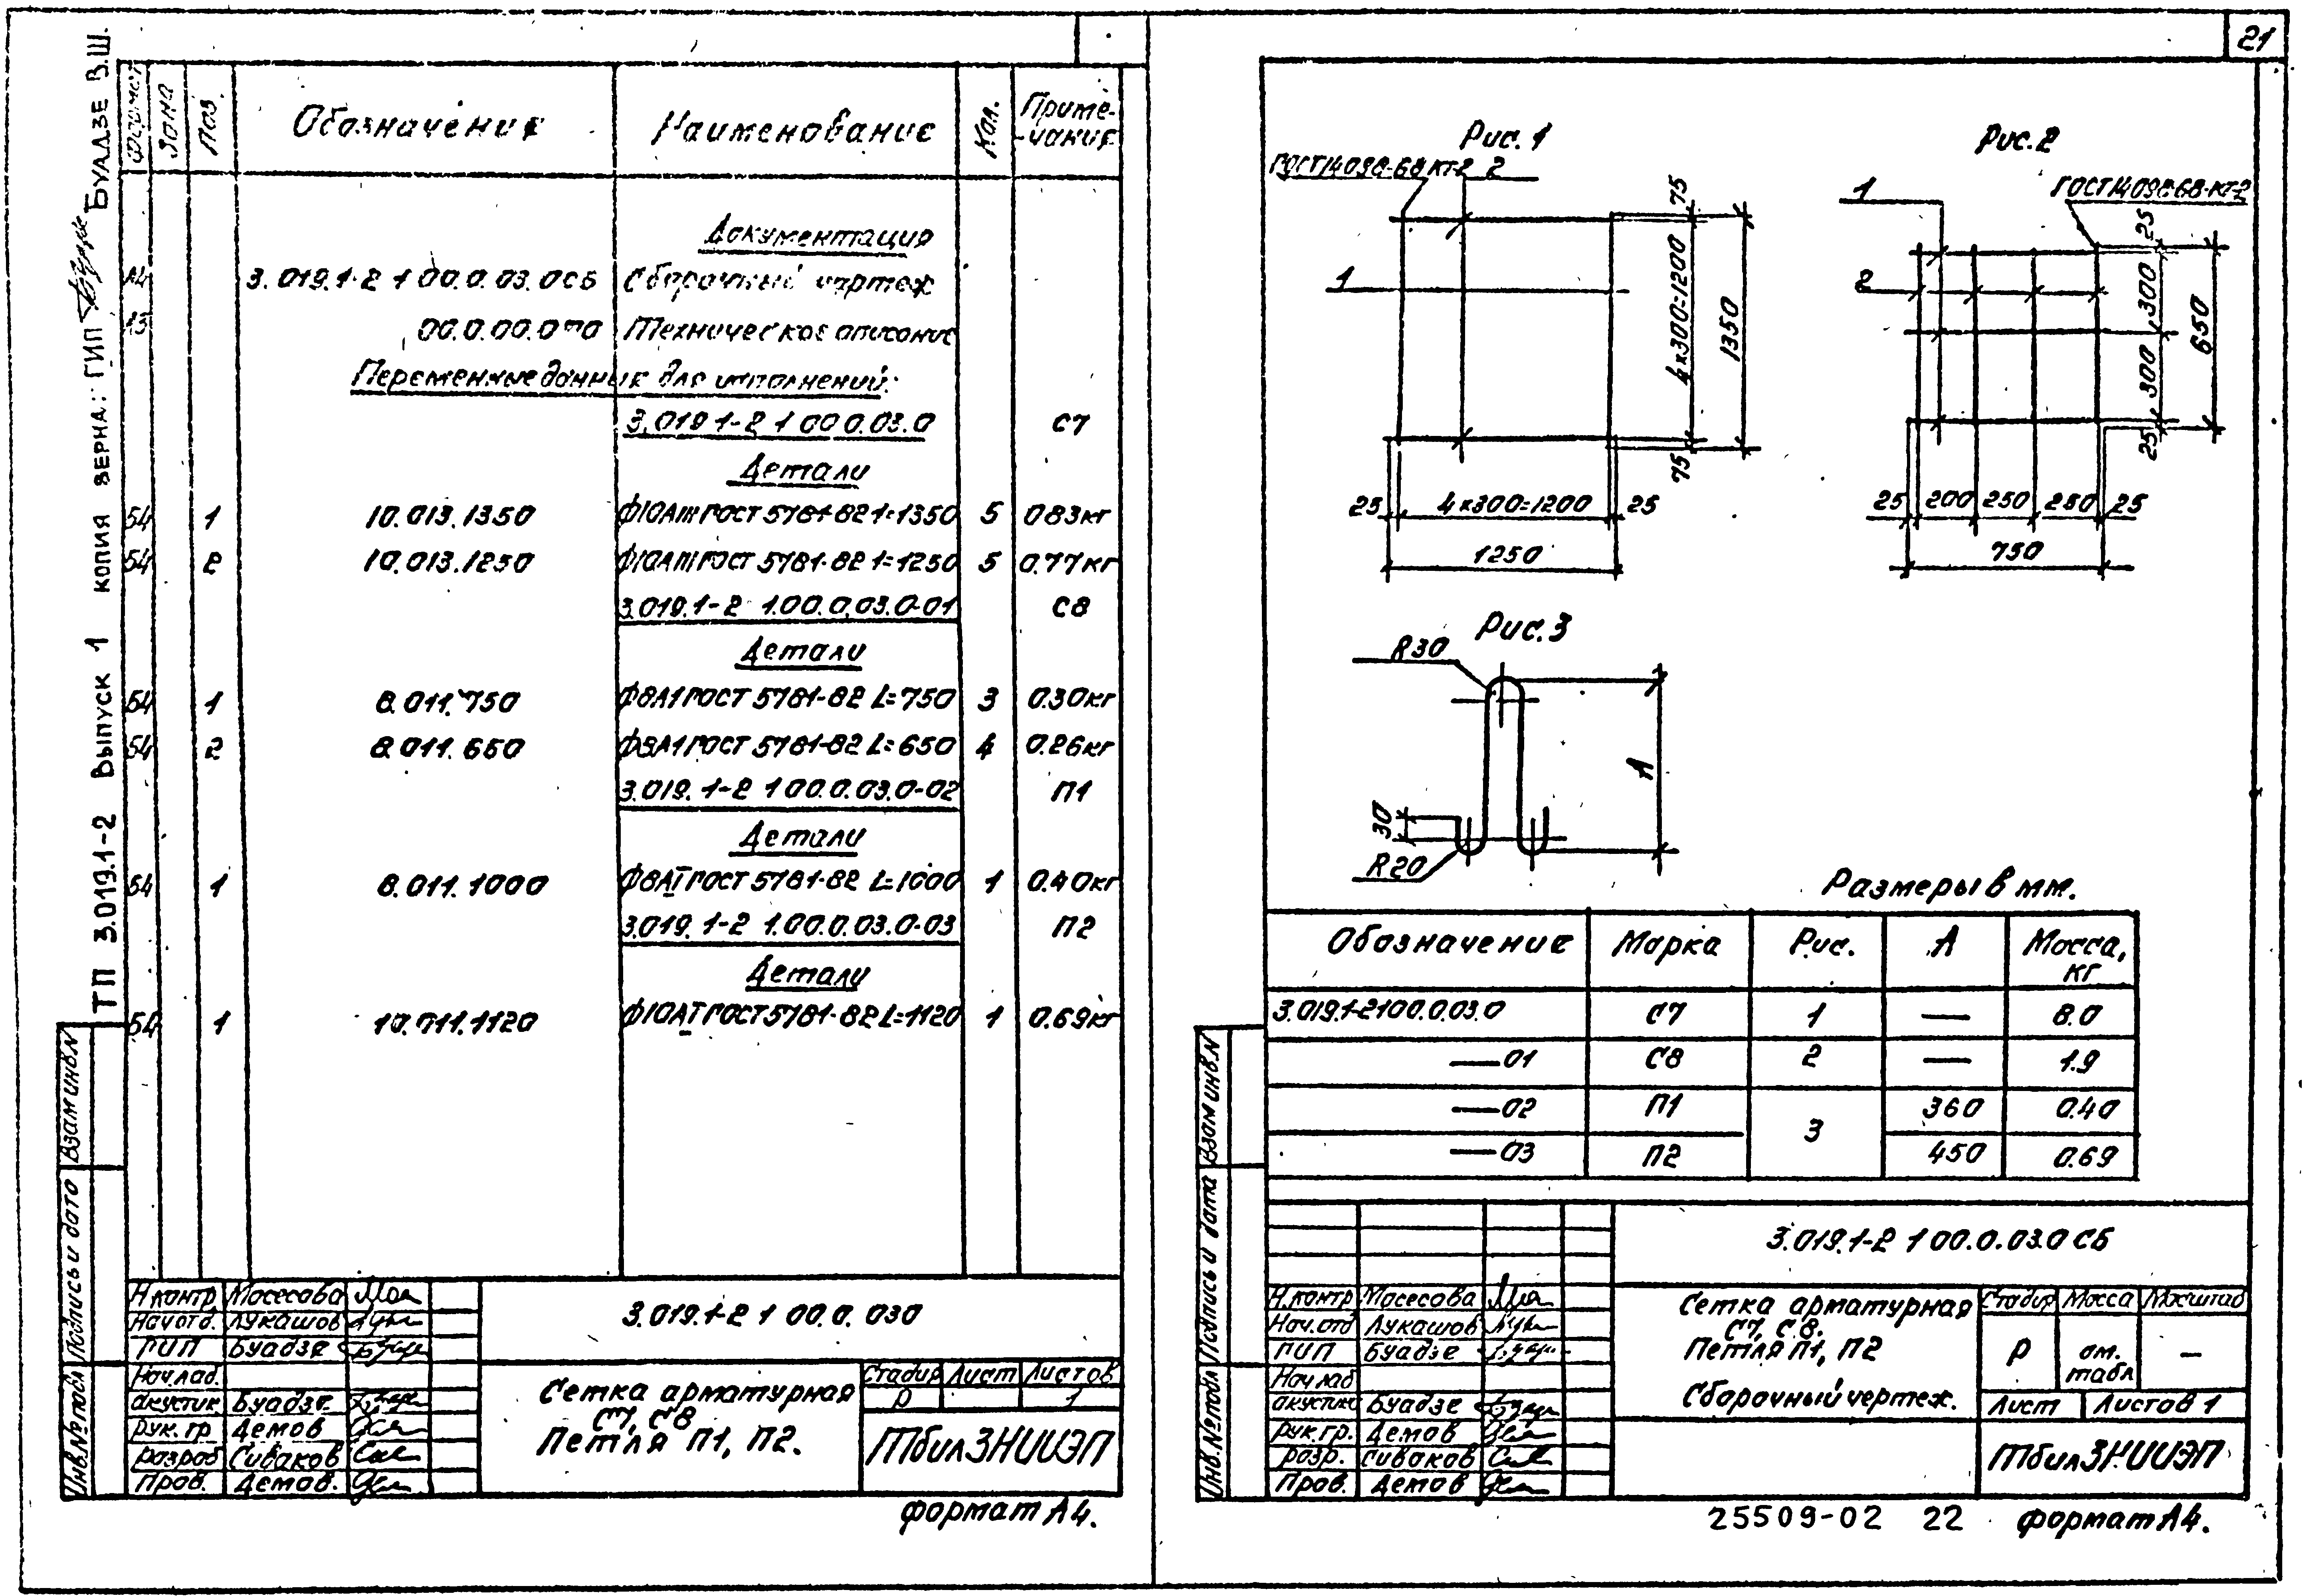 ТП 3.019.1-2 Выпуск 1 копия верна: ГИП Буадзе В.Ш.
Формат Зона Поз. Обозначение Наименование Кол. Приме-
-чание
Документация
А4 3.019.1-2 1 00.0.03.0СБ Сборочный чертеж
А3 00.0.00.0ТО Техническое описание
Переменные данные для исполнений:
3.019.1-2 1 00 0.03.0 С7
Детали
Б4 1 10.013.1350 Ф10АIII ГОСТ 5781-82 l=1350 5 0.83кг
Б4 2 10.013.1250 Ф10АIII ГОСТ 5781-82 l=1250 5 0.77кг
3.019.1-2 1.00.0.03.0-01 С8
Детали
Б4 1 8.011.750 Ф8А1 ГОСТ 5781-82 L=750 3 0.30кг
Б4 2 8.011.650 Ф8А1 ГОСТ 5781-82 L=650 4 0.26кг
3.019.1-2 1 00.0.03.0-02 П1
Детали
Б4 1 8.011.1000 Ф8АI ГОСТ 5781-82 L=1000 1 0.40кг
3.019.1-2 1.00.0.03.0-03 П2
Детали
Б4 1 10.011.1120 Ф10АI ГОСТ 5781-82 L=1120 1 0.69кг
Инв.№подл Подпись и дата Взам инв.N
Н.контр Мосесова
Нач отд. Лукашов
ГИП Буадзе
Нач.лаб.
акустик. Буадзе
Рук.гр. Демов
Разраб Сиваков
Пров. Демов.
3.019.1-2 1 00.0.030
Сетка арматурная
С7, С8
Петля П1, П2.
Стадия Лист Листов
Р 1
ТбилЗНИИЭП
формат А4.
21
Рис.1
ГОСТ14098-68 КТ-2 2
1
75
4×300=1200
1350
75
25 4×300=1200 25
1250
Рис.2
1
ГОСТ14098-68-КТ-2
2
25
300
300
650
25
25 200 250 250 25
750
Рис.3
R30
А
30
R20
Размеры в мм.
Обозначение Марка Рис. А Масса,
кг
3.019.1-2 1 00.0.03.0 С7 1 — 8.0
—01 С8 2 — 1.9
—02 П1 3 360 0.40
—03 П2 450 0.69
Инв.№подл Подпись и дата Взам инв.N
Н.контр Мосесова
Нач.отд Лукашов
ГИП Буадзе
Нач лаб
акустик Буадзе
Рук.гр. Демов
Разр. Сиваков
Пров. Демов
3.019.1-2 1 00.0.03.0 СБ
Сетка арматурная
С7, С8.
Петля П1, П2
Сборочный чертеж.
Стадия Масса Масштаб
Р см.
табл —
Лист Листов 1
ТбилЗНИИЭП
25509-02 22 формат А4.